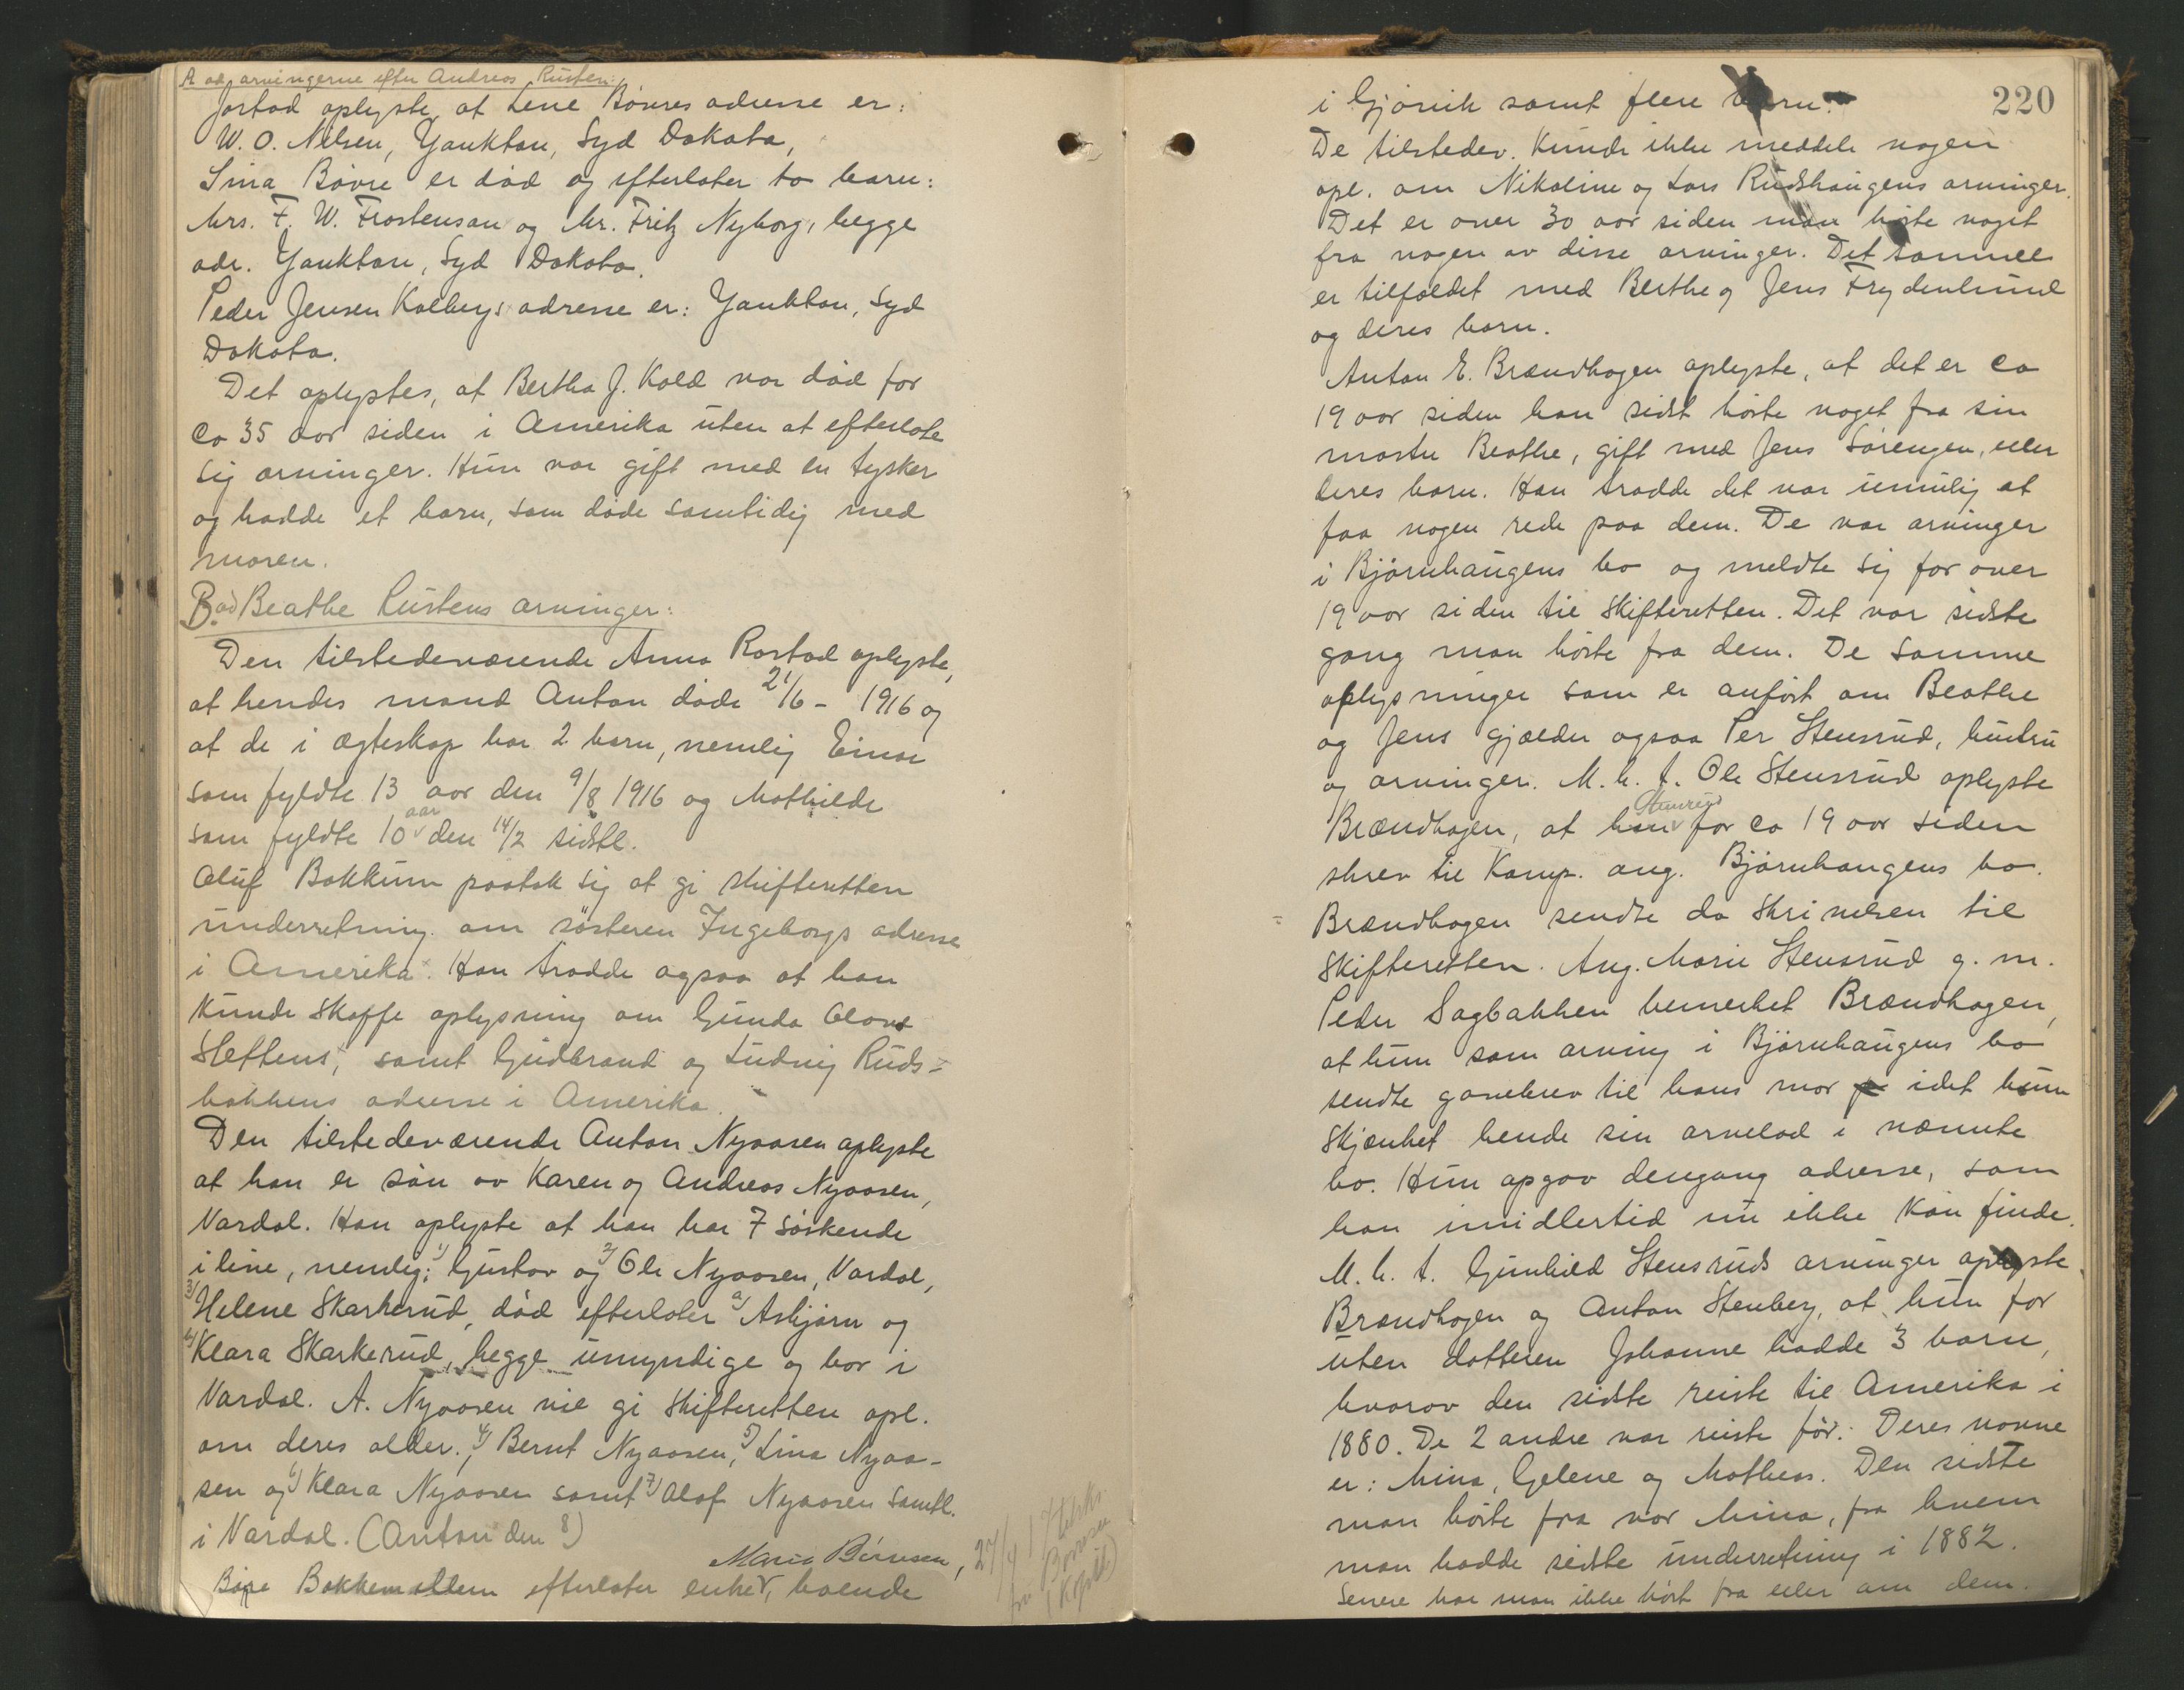 A. ad arvingerne efter Andreas Rusten:
Jostad oplyste, at Lene Bövres adresse er:
W. O. Nelsen, Yankton, Syd Dakota,
Sina Bövre er död og efterlater to barn:
Mrs. F. W. Frostenson og Mr. Fritz Nyborg, begge
adr. Yankton, Syd Dakota.
Peder Jensen Kolbergs adresse er: Yankton, Syd
Dakota.
Det oplystes, at Bertha J. Kold var död for
ca 35 aar siden i Amerika uten at efterlate
sig arvinger. Hun var gift med en tysker
og hadde et barn, som döde samtidig med
moren.
B. ad Beathe Rustens arvinger:
Den tilstedeværende Anna Rostad oplyste,
at hendes mand Anton döde 21/6 - 1916 og
at de i ægteskap har 2 barn, nemlig Einar
som fyldte 13 aar den 9/8 1916 og Mathilde
som fyldte 10 aar den 14/2 sidstl.
Oluf Bakkum paatok sig at gi skifteretten
underretning om sösteren Ingeborgs adresse
i Amerika. Han trodde ogsaa at han
kunde skaffe oplysning om Gunda Olava
Slettens, samt Gudbrand og Ludvig Ruds-
bakkens adresse i Amerika.
Den tilstedeværende Anton Nyaasen oplyste
at han er sön av Karen og Andreas Nyaasen,
Vardal. Han oplyste at han har 7 söskende
i live, nemlig: 1) Gustav og 2) Ole Nyaasen, Vardal,
3) Helene Skarkerud, död efterlater a) Asbjörn og
b) Klara Skarkerud, begge umyndige og bor i
Vardal. A. Nyaasen vil gi skifteretten opl.
om deres alder. 4) Bernt Nyaasen, 5) Lina Nyaa-
sen og 6) Klara Nyaasen samt 7) Olaf Nyaasen samtl.
i Vardal. (Anton den 8)
Marie Börvesen, 27/4
Bakkemellem efterlater enke, boende
220
i Gjövik samt flere barn.
De tilstedev. kunde ikke meddele nogen
opl. om Nikoline og Lars Rudshaugens arvinger.
Det er over 30 aar siden man hörte noget
fra nogen av disse arvinger. Det samme
er tilfældet med Berthe og Jens Frydenlund
og deres barn.
Anton E. Brændhagen oplyste, at det er ca
19 aar siden han sidst hörte noget fra sin
moster Beathe, gift med Jens Sörengen, eller
deres barn. Han trodde det var umulig at
faa nogen rede paa dem. De var arvinger
i Björnhaugens bo og meldte sig for over
19 aar siden til skifteretten. Det var sidste
gang man hörte fra dem. De samme
oplysninger som er anfört om Beathe
og Jens gjælder ogsaa Per Stensrud, hustru
og arvinger. M. h. t. Ole Stensrud oplyste
Brændhagen, at han Stensrud for ca 19 aar siden
skrev til Kamp. ang. Björnhaugens bo.
Brændhagen sendte da skrivelsen til
skifteretten. Ang. Marie Stensrud g. m.
Peder Sagbakken bemerket Brændhagen,
at hun som arving i Björnhaugens bo
sendte gavebrev til hans mor idet hun
skjænket hende sin arvelod i nævnte
bo. Hun opgav dengang adresse, som
han imidlertid nu ikke kan finde.
M. h. t. Gunhild Stensruds arvinger oplyste
Brændhagen og Anton Stenberg, at hun for
uten datteren Johanne hadde 3 barn,
hvorav den sidste reiste til Amerika i
1880. De 2 andre var reist för. Deres navne
er: Mina, Gelene og Mathias. Den sidste
man hörte fra var Mina, fra hvem
man hadde sidste underretning i 1882.
Senere har man ikke hört fra eller om dem.